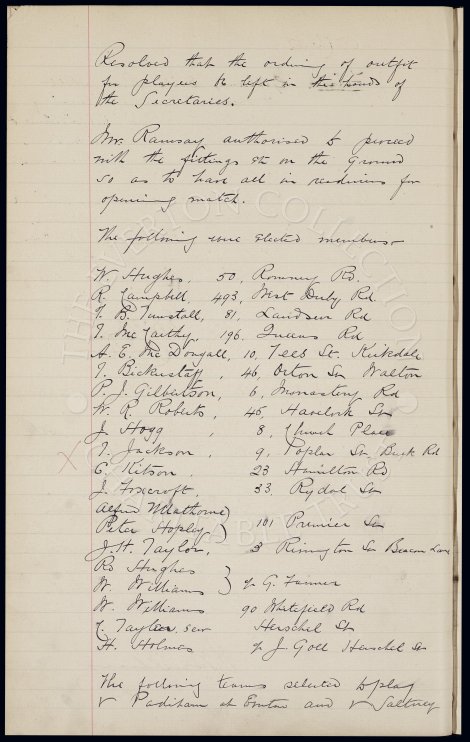 Resolved that the ordering of outfit
for players be left in the hands of
the Secretaries.
Mr. Ramsay authorised to proceed
with the fittings etc on the ground
so as to have all in readiness for
opening match.
The following were elected members
W. Hughes, 50, Romney Rd.
R. Campbell, 493, West Derby Rd
T. B. Tunstall, 81, Landseer Rd
J. McCarthy, 196, Queens Rd
A. E. McDougall, 10, Tees St. Kirkdale
J. Bickerstaff, 46, Orton St Walton
P. J. Gilbertson, 6, Monastery Rd
W. R. Roberts, 45, Havelock St
J. Hogg, 8, Church Place
J. Jackson, 9, Poplar St, Breck Rd
E. Kitson, 23 Hamilton Rd
J. Foxcroft, 33, Rydal St
Alfred
Peter Hopley 101 Premier St
J. H. Taylor, 3 Rimington St Beacon Lane
Rd Hughes
W. Williams } c/o G. Farmer
W. Williams 90 Whitefield Rd
Taylor, senr Herschel St
H. Holmes c/o J. Gott Herschel St
The following teams selected to play
v Padiham at Everton and v Saltney
THE EVERTON COLLECTION